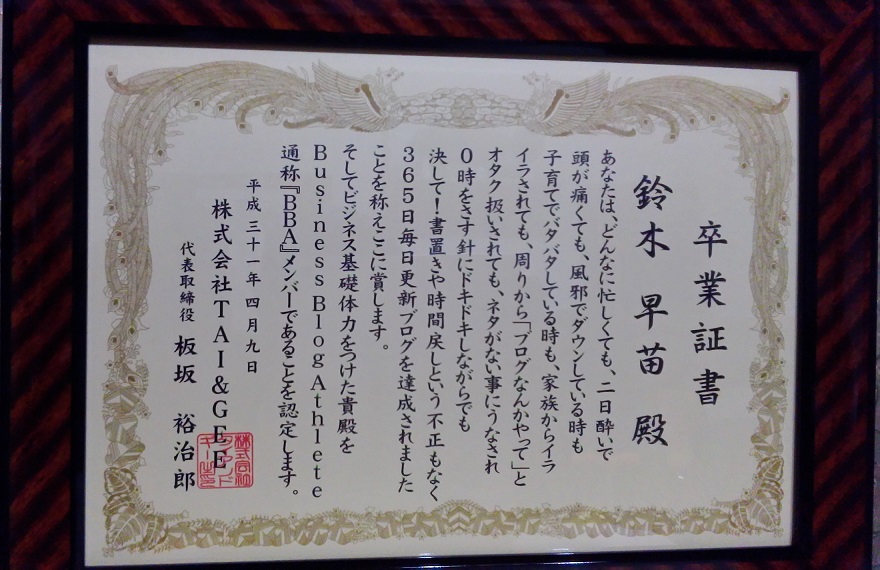 卒業証書
鈴木 早苗 殿
あなたは、どんなに忙しくても、二日酔いで
頭が痛くても、風邪でダウンしている時も
子育てでバタバタしている時も、家族からイラ
イラされても、周りから「ブログなんかやって」と
オタク扱いされても、ネタがない事にうなされ
0時をさす針にドキドキしながらでも
決して!書置きや時間戻しという不正もなく
365日毎日更新ブログを達成されました
ことを称えここに賞します。
そしてビジネス基礎体力をつけた貴殿を
Business Blog Athlete
通称『BBA』メンバーであることを認定します。
平成三十一年四月九日
株式会社TAI&GEE
代表取締役 板坂 裕治郎